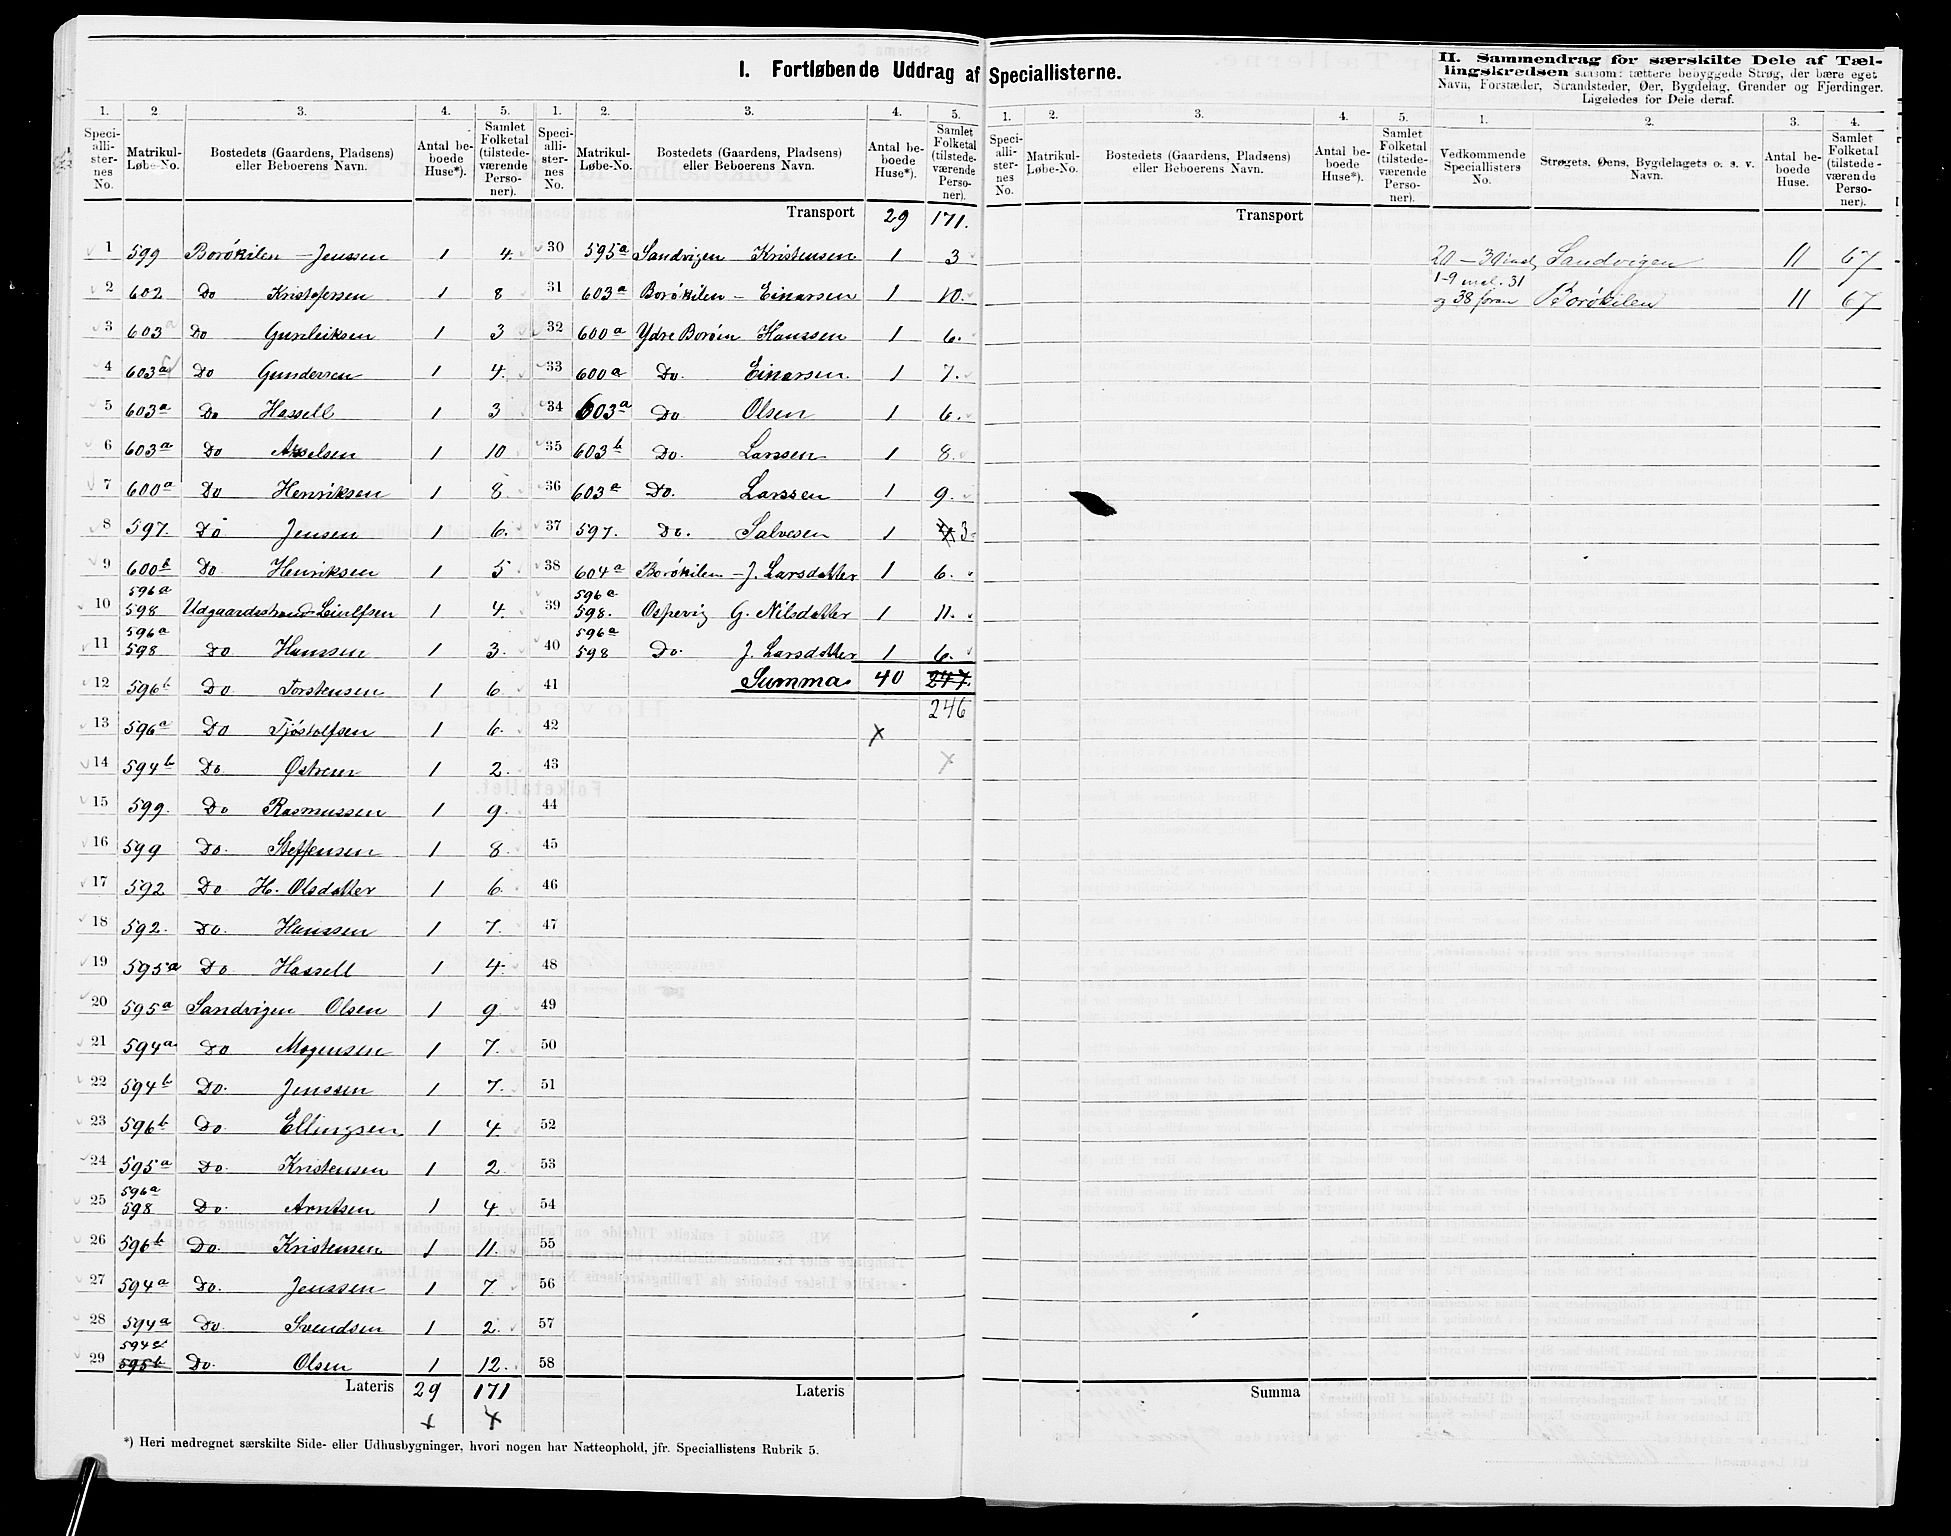 I. Fortløbende Uddrag af Speciallisterne.
1. 2 3. 4. 5.
Speciallisternes No. Matrikul-Løbe-No. Bostedets (Gaardens, Pladsens) eller Beboerens Navn. Antal beboede Huse*). Samlet Folketal (tilstedeværende Personer).
1 599 Borøkilen - Jenssen 1 4.
2 602 Do Kristofersen 1 8
3 603a Do Gunleiksen 1 3
4 603a Do Gundersen 1 4.
5 603a Do Hassell 1 3
6 603a Do Akselsen 1 10
7 600a Do Henriksen 1 8.
8 597. Do Jensen 1 6.
9 600b Do. Henriksen 1 5
10 596a 598 Udgaardsstrand Leiulfsen 1 4.
11 596a 598 Do Hanssen 1 3.
12 596b Do Torstensen 1 6
13 596a Do Tjøstolfsen 1 6.
14 594b Do Østrem 1 2.
15 599. Do Rasmussen 1 9.
16 599 Do. Steffensen 1 8.
17 592 Do H. Olsdatter 1 6.
18 592. Do. Hanssen 1 7.
19 595a Do Hassell 1 4.
20 595a Sandvigen Olsen 1 9
21 594a. Do Mogensen 1 7.
22 594b Do. Jenssen 1 7.
23 596b Do. Ellingsen 1 4.
24 595a Do. Kristensen 1 2
25 596a 598 Do. Arntsen 1 4
26 596b Do. Kristensen 1 11.
27 594a Do. Jenssen 1 7.
28 594a Do. Svendsen 1 2.
29 595b Do. Olsen 1 12.
Lateris 29 171
*) Heri medregnet særskilte Side- eller Udhusbygninger, hvori nogen har Natteophold, jfr. Speciallistens Rubrik 5.
1. 2. 3. 4. 5.
Speciallisternes No. Matrikul-Løbe-No. Bostedets (Gaardens, Pladsens) eller Beboerens Navn. Antal beboede Huse*). Samlet Folketal (tilstedeværende Personer).
Transport 29 171.
30 595a Sandvigen Kristensen 1 3
31 603a Borøkilen - Einarsen 1 10.
32 600a Ydre Borøen Hanssen 1 6.
33 600a Do. Einarsen. 1 7.
34 603a Do Olsen 1 6.
35 603b Do. Larssen 1 8.
36 603a Do. Larssen 1 9.
37 597. Do. Salvesen 1 3.
38 604a Borøkilen - J. Larsdatter 1 6.
39 596a 598. Ospevig G. Nilsdatter 1 11.
40 596a 598 Do. J. Larsdatter 1 6.
41 Summa. 40 247.
246
42
43
44
45
46
47
48
49
50
51
52
53
54
55
56
57
58
Lateris
1. 2. 3. 4. 5.
Speciallisternes No. Matrikul-Løbe-No. Bostedets (Gaardens, Pladsens) eller Beboerens Navn. Antal beboede Huse*). Samlet Folketal (tilstedeværende Personer).
Transport
Summa
II. Sammendrag for særskilte Dele af Tællingskredsen saasom: tættere bebyggede Strøg, der bære eget Navn, Forstæder, Strandsteder, Øer, Bygdelag, Grender og Fjerdinger. Ligeledes for Dele deraf.
1. 2. 3. 4.
Vedkommende Speciallisters No. Strøgets, Øens, Bygdelagets o. s. v. Navn. Antal beboede Huse. Samlet Folketal (tilstedeværende Personer).
20 - 30 incl. Sandvigen 11 67
1-9 incl. 31 og 38 foran Borøkilen 11 67